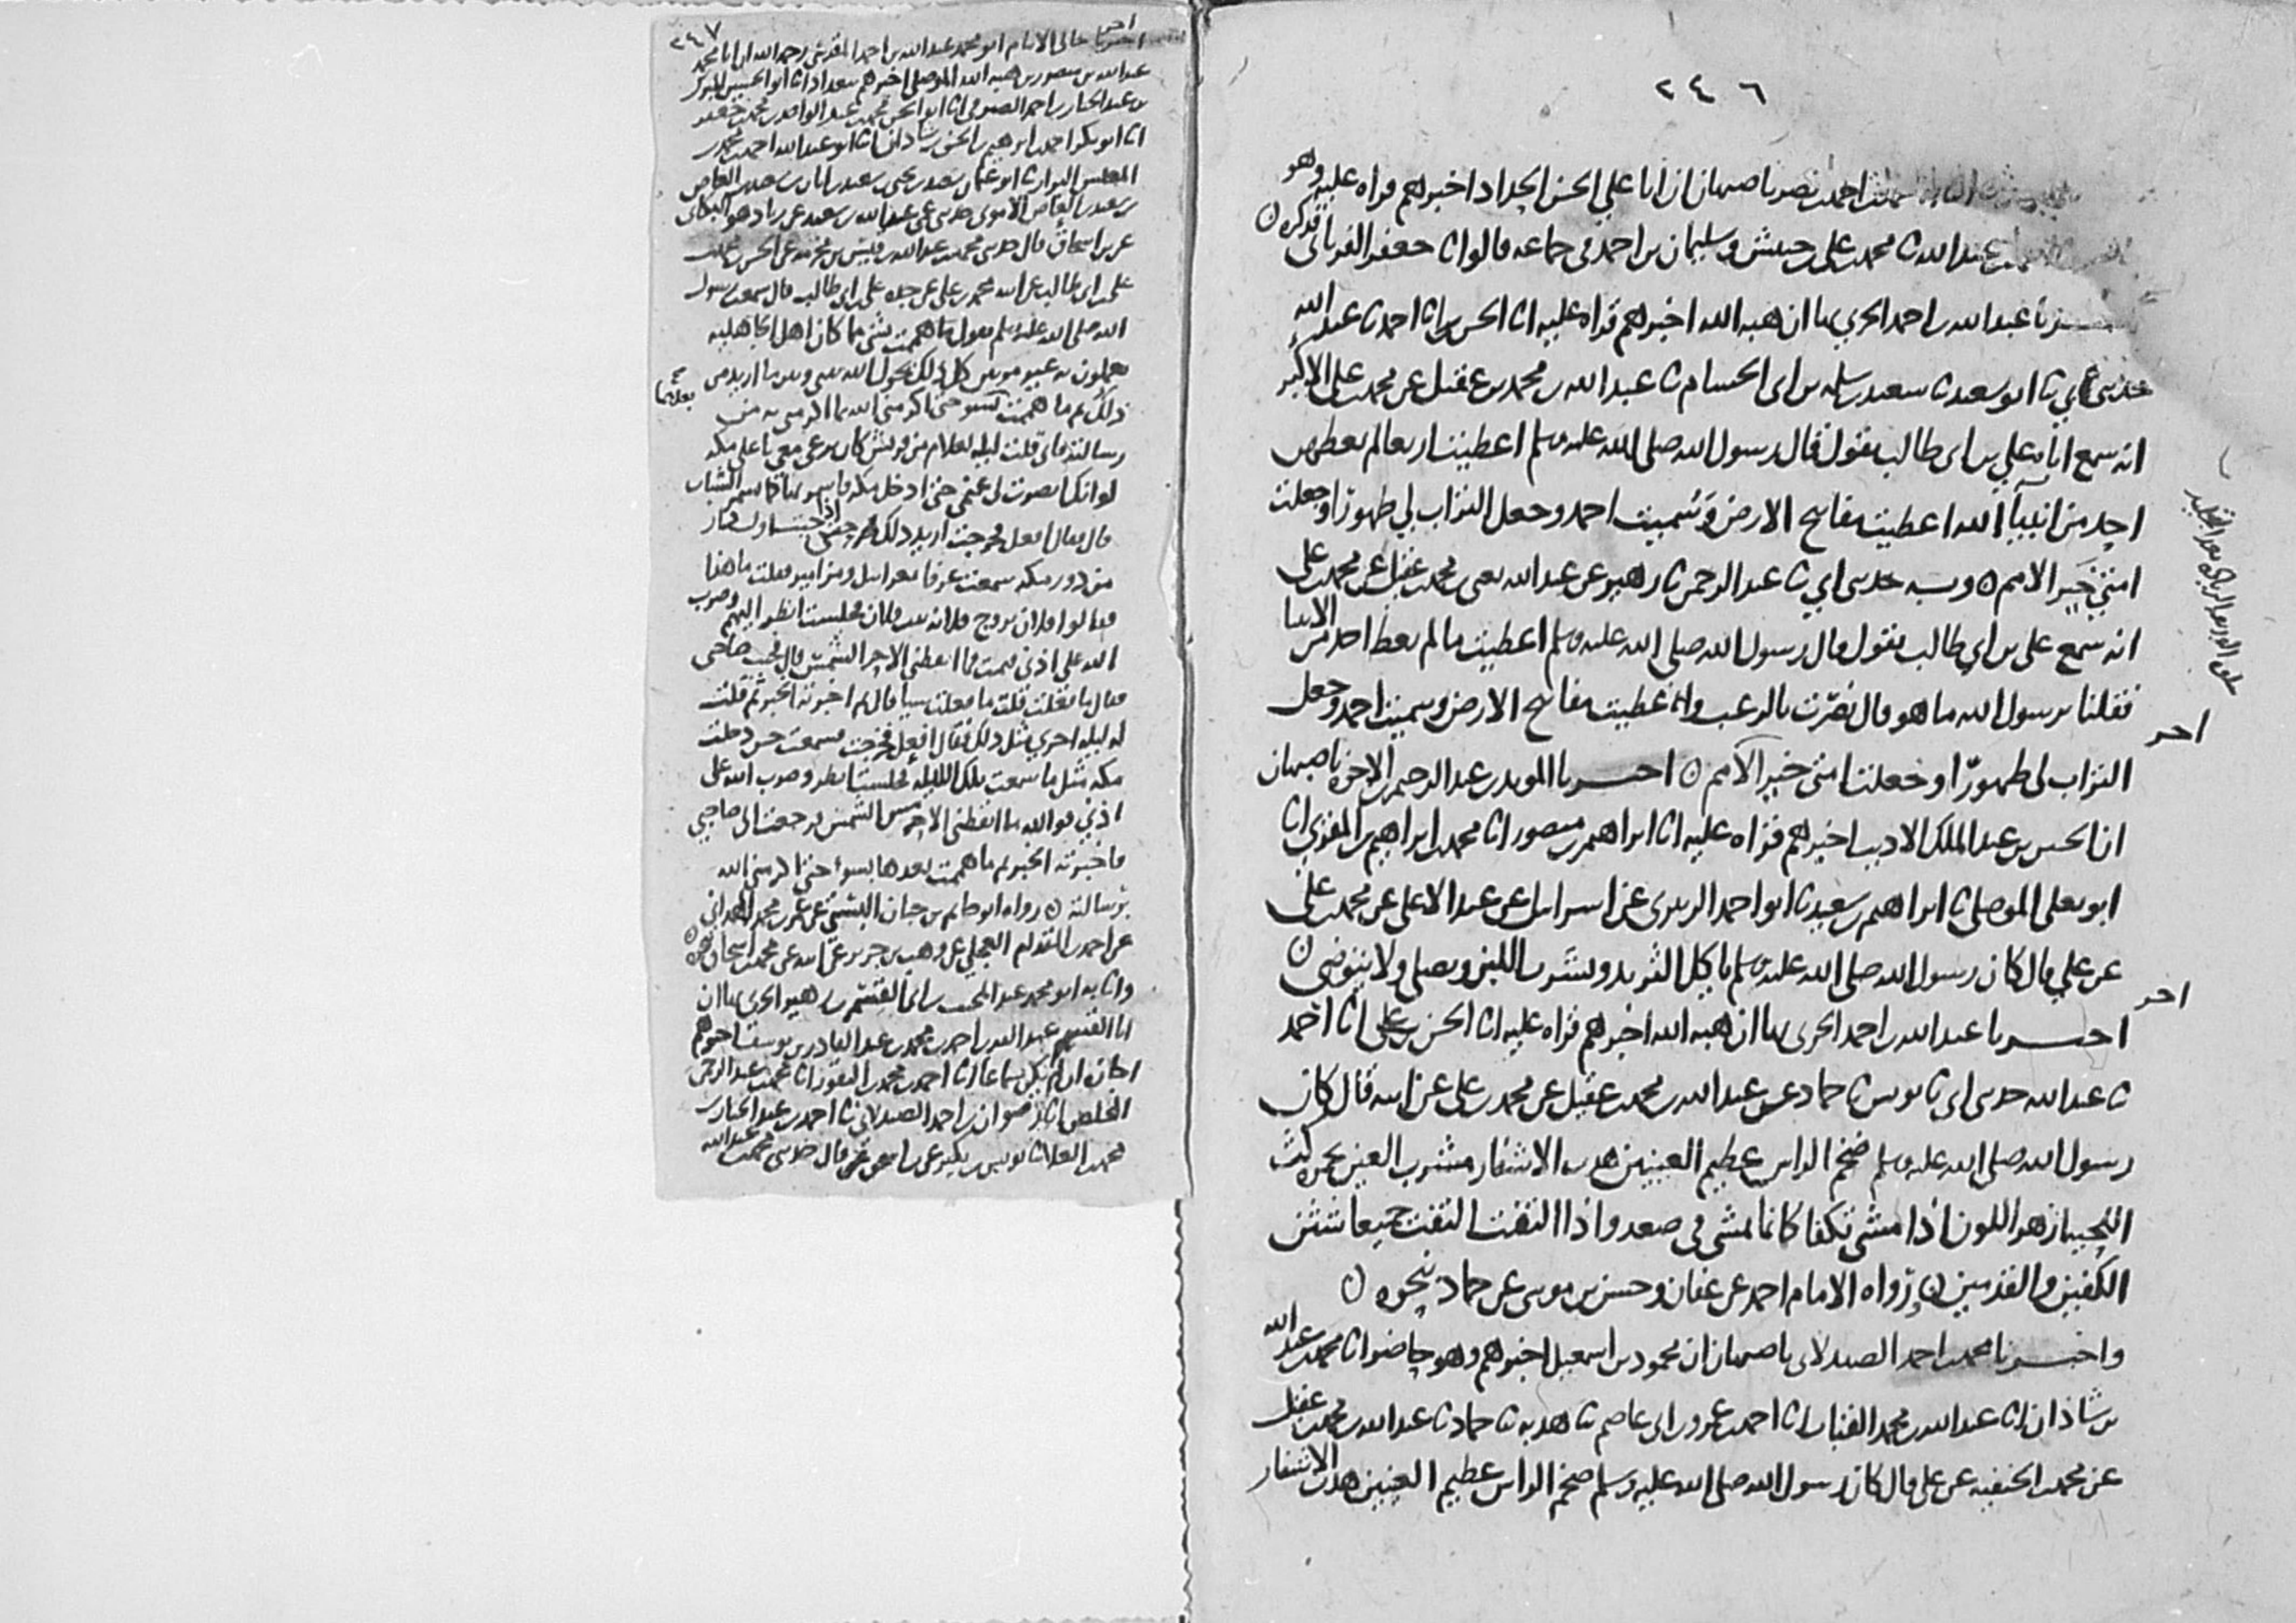 ٢٤٦
احمد بن نصر باصبهان ان ابا علي الحسن الحداد اخبرهم قراه عليه وهو
عبد الله ثا محمد بن علي بن حبيش وسليمان بن احمد في جماعه قالوا ثا جعفر الفريابي فذكره
عبد الله بن احمد الحربي بها ان هبه الله اخبرهم قراه عليه انا الحسن بن انا احمد ثا عبد الله
حدثني ابي ثا ابو سعيد ثا سعيد بن سلمه بن ابي الحسام ثا عبد الله بن محمد بن عقيل عن محمد بن علي الاكبر
انه سمع اباه علي بن ابي طالب يقول قال رسول الله صلى الله عليه وسلم اعطيت اربعا لم يعطهن
احد من انبيآ الله اعطيت مفاتيح الارض وسميت احمد وجعل التراب لي طهورا وجعلت
امتي خير الامم ٥ وبه حدثني ابي ثا عبد الرحمن ثا زهير عن عبد الله يعني محمد بن عقيل عن محمد بن علي
انه سمع علي بن ابي طالب يقول قال رسول الله صلى الله عليه وسلم اعطيت ما لم يعط احد من الانبيا
فقلنا يرسول الله ما هو قال نصرت بالرعب واعطيت مفاتيح الارض وسميت احمد وجعل
التراب لي طهورا وجعلت امتي خير الامم ٥ اخبرنا المويد بن عبد الرحيم بن الاخوه باصبهان
ان الحسين بن عبد الملك الاديب اخبرهم قراه عليه انا ابراهيم بن منصور انا محمد بن ابراهيم بن المقري انا
ابو يعلى الموصلي ثا ابراهيم بن سعيد ثا ابو احمد الزبيري عن اسرايل عن عبد الاعلى عن محمد بن علي
عن علي قال كان رسول الله صلى الله عليه وسلم ياكل الثريد ويشرب اللبن ويصلي ولا يتوضى ٥
اخبرنا عبد الله بن احمد الحربي بها ان هبه الله اخبرهم قراه عليه انا الحسن بن علي انا احمد
ثا عبد الله حدثني ابي ثا يونس ثا حماد عن عبد الله بن محمد بن عقيل عن محمد بن علي عن ابيه قال كان
رسول الله صلى الله عليه وسلم ضخم الراس عظيم العينين هدب الاشفار مشرب العين بحمره كث
اللحيه ازهر اللون اذا مشى تكفا كانما يمشي في صعد واذا التفت التفت جميعا شثن
الكفين والقدمين ٥ رواه الامام احمد عن عفان وحسن بن موسى عن حماد بنحوه ٥
واخبرنا محمد بن احمد الصيدلاني باصبهان ان محمود بن اسمعيل اخبرهم وهو حاضر انا محمد بن عبد الله
بن شاذان انا عبد الله بن محمد القباب انا احمد بن عمرو بن ابي عاصم ثا هدبه ثا حماد ثا عبد الله بن محمد بن عقيل
عن محمد بن الحنفيه عن علي قال كان رسول الله صلى الله عليه وسلم ضخم الراس عظيم العينين هدب الاشفار
احر
احر
٢٤٧
اخبرنا خالي الامام ابو محمد عبد الله بن احمد المقدسي رحمه الله ان ابا محمد
عبد الله بن منصور بن هبه الله الموصلي اخبرهم ببغداد انا ابو الحسين المبارك
بن عبد الجبار بن احمد الصيرفي انا ابو الحسن محمد بن عبد الواحد بن محمد بن جعفر
انا ابو بكر احمد بن ابرهيم بن الحسن بن شاذان انا ابو عبد الله احمد بن محمد بن
المغلس البزار ثا ابو عثمان سعيد بن يحيى بن سعيد بن ابان بن سعيد بن العاص
بن سعيد بن العاص الاموي حدثني عمي عبد الله بن سعيد عن زياد هو البكائي
عن بن اسحاق قال حدثني محمد بن عبد الله بن قيس بن مخرمه عن الحسن بن محمد بن
علي بن ابي طالب عن ابيه محمد بن علي عن جده علي بن ابي طالب قال سمعت رسول
الله صلى الله عليه وسلم يقول ما هممت بشي مما كان اهل الجاهليه
يعملون به غير مرتين كل ذلك يحول الله بيني وبين ما اريد من
ذلك ثم ما هممت بسو حتى اكرمني الله بما اكرمني به من
رسالته فاني قلت ليله لغلام من قريش كان يرعى معي باعلى مكه
لو انك ابصرت لي غنمي حتى ادخل مكه فاسمر بها كما يسمر الشباب
قال فقال افعل فخرجت اريد ذلك حتى اذا جيت اول دار
من دور مكه سمعت عزفا بغرابيل ومزامير فقلت ما هذا
فقالوا فلان تزوج فلانه بنت فلان فجلست انظر اليهم وضرب
الله على اذني فنمت فما ايقظني الا حر الشمس قال فجيت صاحبي
فقال ما فعلت قلت ما فعلت شيا قال ثم اخبرته الخبر ثم قلت
له ليله اخرى مثل ذلك فقال افعل فخرجت فسمعت حين دخلت
مكه مثل ما سمعت تلك الليله فجلست انظر وضرب الله على
اذني فوالله ما ايقظني الا مس الشمس فرجعت الى صاحبي
فاخبرته الخبر ثم ما هممت بعدها بسوء حتى اكرمني الله
برسالته ٥ رواه ابو حاتم بن حبان البستي عن عمر بن محمد الهمداني
عن احمد بن المقدام العجلي عن وهب بن جرير عن ابيه عن محمد بن اسحاق بنحوه ٥
وانا به ابو محمد عبد المجيب بن ابي القسم بن زهير الحربي بها ان
ابا القسم عبد الله بن احمد بن محمد بن عبد القادر بن يوسف اخبرهم
اجازه ان لم يكن سماعا انا احمد بن محمد بن النقور انا محمد بن عبد الرحمن
المخلص انا رضوان بن احمد الصيدلاني ثا احمد بن عبد الجبار بن
محمد العلا ثا يونس بن بكير عن بن اسحق قال حدثني محمد بن عبد الله